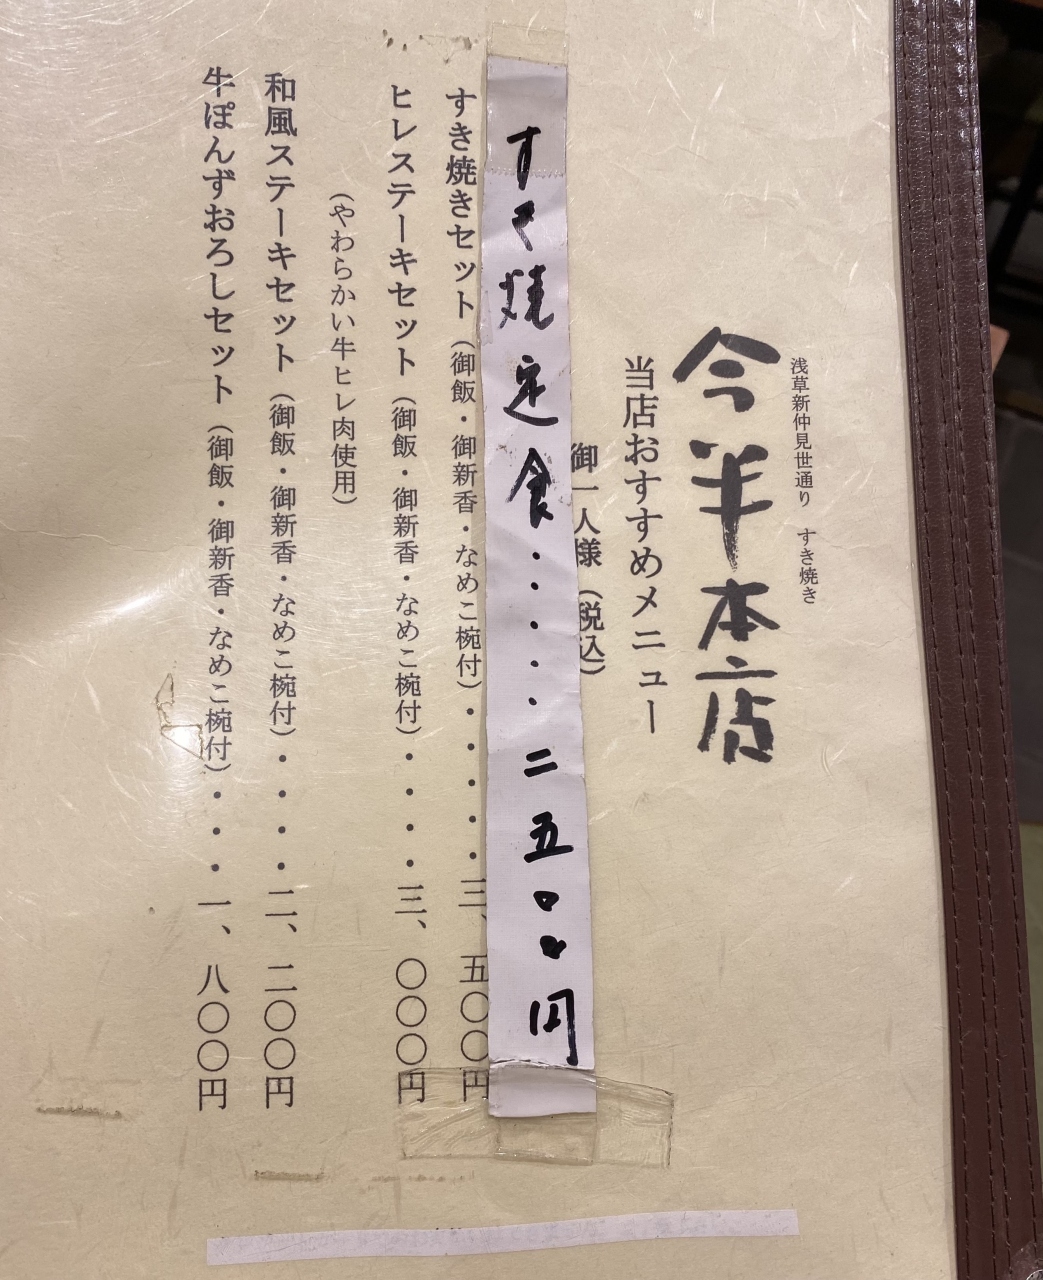 浅草新仲見世通り　すき焼き
今半本店
当店おすすめメニュー
御一人様（税込）
すき焼定食・・・・・二五〇〇円
すき焼きセット（御飯・御新香・なめこ椀付）・・・・三、五〇〇円
ヒレステーキセット（御飯・御新香・なめこ椀付）・・・三、〇〇〇円
（やわらかい牛ヒレ肉使用）
和風ステーキセット（御飯・御新香・なめこ椀付）・・・二、二〇〇円
牛ぽんずおろしセット（御飯・御新香・なめこ椀付）・・・一、八〇〇円